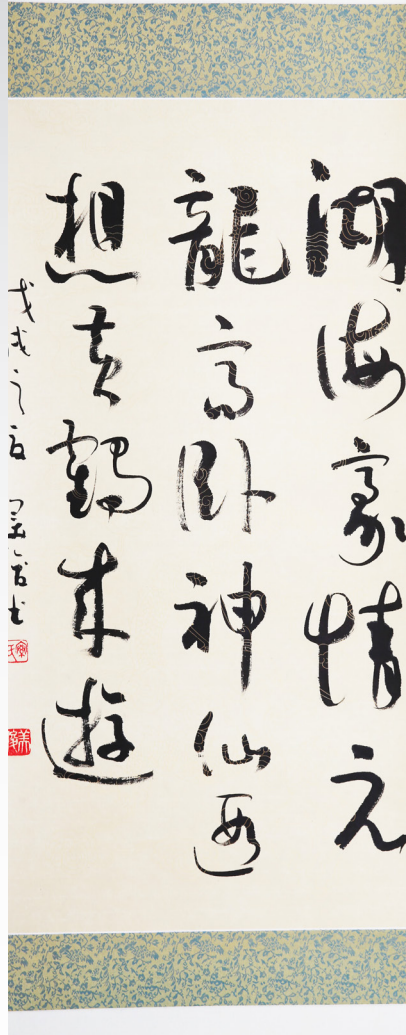 湖海豪情元
龍高卧神仙遐
想黄鶴來遊
戊戌之